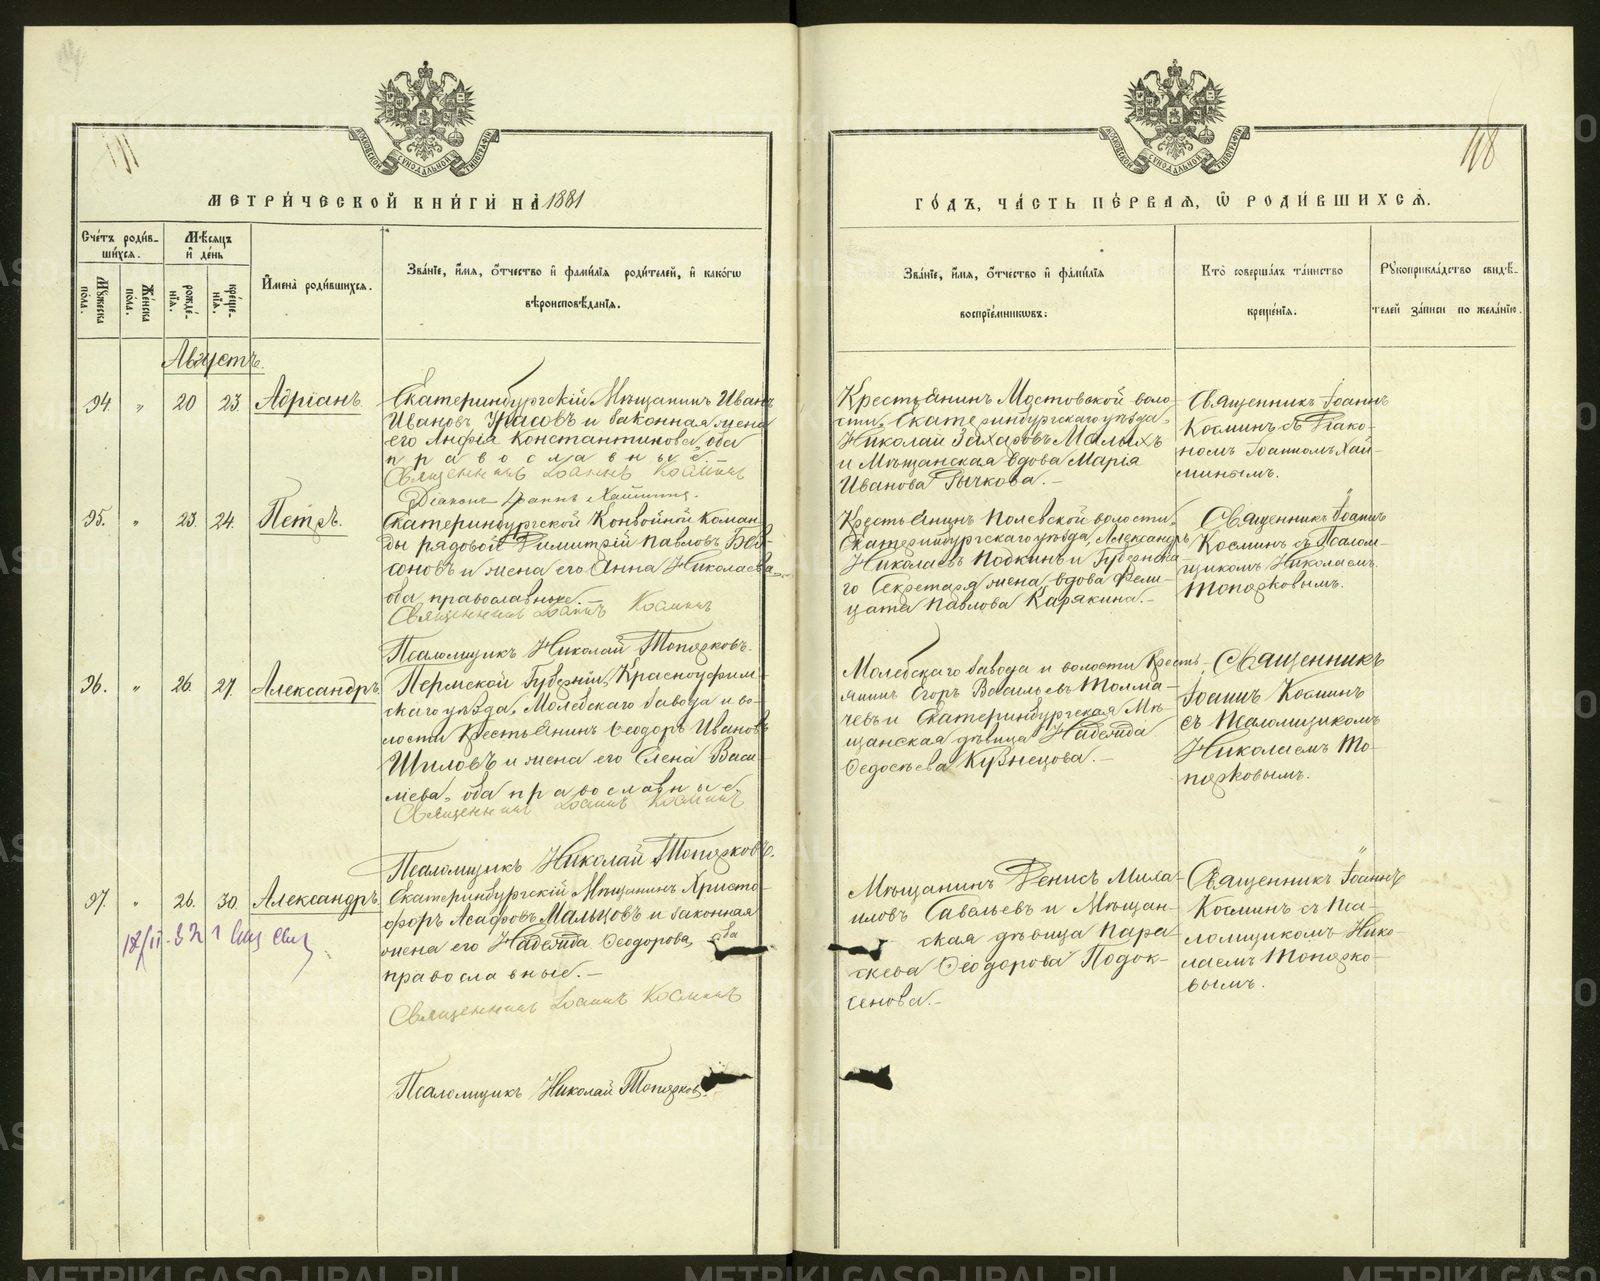 МЕТРИ́ЧЕСКОЙ КНИ́ГИ НА̀ 1881
Сче́тъ роди́в-
шихсѧ.
Мѣ́сѧцъ
и҆ де́нь
Мꙋ́жеска
по́ла.
Же́нска
по́ла.
рожде́-
нїѧ.
креще́-
нїѧ.
И҆мена̀ роди́вшихсѧ.
Зва́нїе, и҆́мѧ, ѻ҆́тчество и҆ фами́лїѧ роди́телей, и҆ како́гѡ
вѣроисповѣ́данїѧ.
Августъ.
94. " 20 23. Адріанъ
Екатеринбургскій Мѣщанинъ Иванъ
Ивановъ Урасовъ и законная жена
его Анфія Константинова, оба
православные
Священникъ Іоаннъ Косминъ
Діаконъ Іоаннъ Хайминъ.
95. " 23. 24. Петръ.
Екатеринбургской Конвойной Коман-
ды рядовой Димитрій Павловъ
и жена его Анна Николаева
оба православные.
Священникъ Іоаннъ Косминъ
Псаломщикъ Николай Топорковъ.
96. " 26. 27. Александръ
Пермской Губерніи, Красноуфим-
скаго уѣзда, Молебскаго завода и во-
лости Крестьянинъ Ѳеодоръ Ивановъ
Шиловъ и жена его Елена Васи-
лiева, оба православные.
Священникъ Іоаннъ Косминъ
Псаломщикъ Николай Топорковъ.
97. " 26. 30. Александръ
Екатеринбургскій Мѣщанинъ Христо-
форъ Асафовъ Мальцовъ и законная
жена его Надежда Ѳеодорова, оба
православные.-
Священникъ Іоаннъ Косминъ
Псаломщикъ Николай Топорковъ.
118
ГО́ДЪ, ЧА́СТЬ ПЕ́РВАЯ, Ѡ҆ РОДИ́ВШИХСѦ.
Зва́нїе, и҆́мѧ, ѻ҆́тчество и҆ фами́лїѧ
воспрїе́мникѡвъ.
Кто̀ соверша́лъ та́инство
креще́нїѧ.
Рꙋкоприкла́дство свидѣ́-
телей за́писи по жела́нїю.
Крестьянинъ Мостовской воло-
сти, Екатеринбургскаго уѣзда,
Николай Захаровъ Малыхъ
и Мѣщанская вдова Марія
Иванова Рычкова.-
Священникъ Іоаннъ
Косминъ съ Діако-
номъ Іоанномъ Хай-
минымъ.
Крестьянинъ Полевской волости,
Екатеринбургскаго уѣзда, Александръ
Николаевъ Подкинъ и Губернска-
го Секретаря жена вдова Фели-
цата Павлова Карякина.-
Священникъ Іоаннъ
Косминъ съ Псалом-
щикомъ Николаемъ
Топорковымъ.
Молебскаго завода и волости Кресть-
янинъ Егоръ Васильевъ Толма-
чевъ и Екатеринбургская Мѣ-
щанская дѣвица Надежда
Ѳедосѣева Кузнецова.-
Священникъ
Іоаннъ Косминъ
съ Псаломщикомъ
Николаемъ То-
порковымъ.
Мѣщанинъ Денисъ Миха-
иловъ Савельевъ и Мѣщан-
ская дѣвица Пара
скева Ѳеодорова Подок-
сенова.-
Священникъ Іоаннъ
Косминъ съ Пса-
ломщикомъ Нико-
лаемъ Топорко-
вымъ.
METRIKI.GASO-URAL.RU